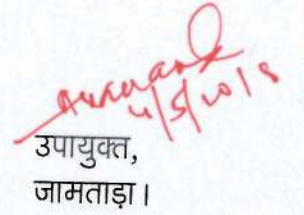 4/5/2018
उपायुक्त,
जामताड़ा।